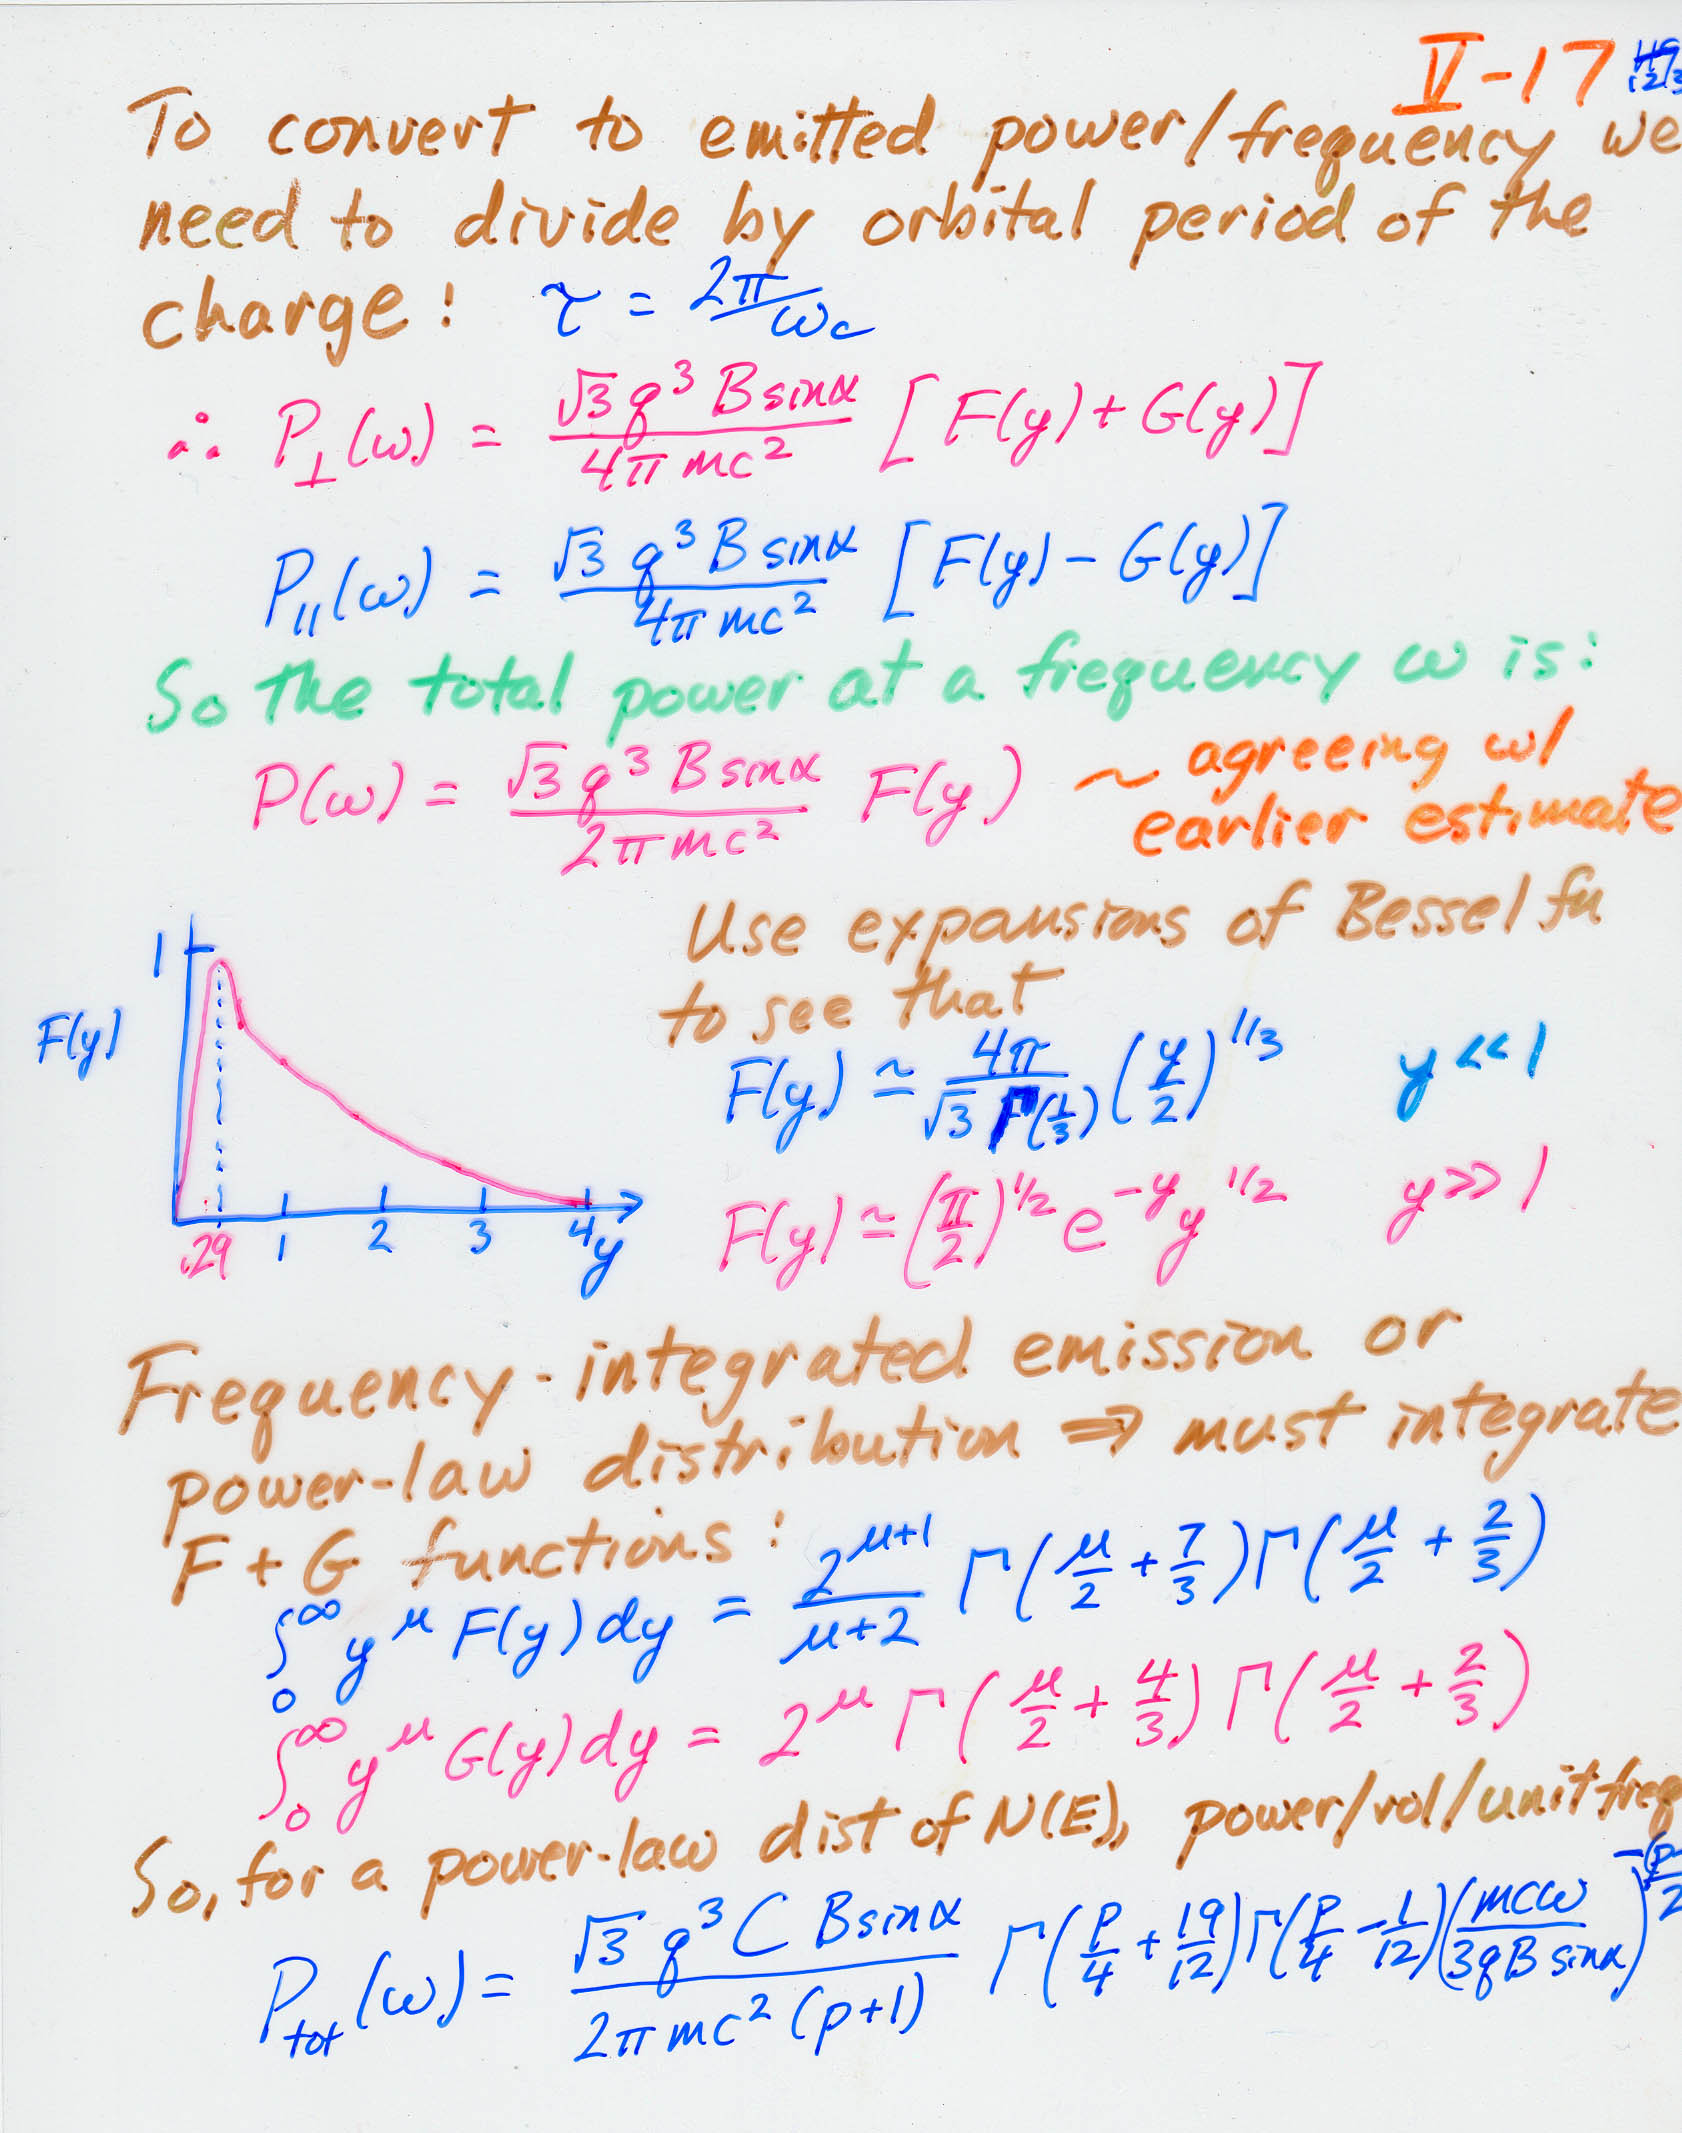 V-17
To convert to emitted power/frequency we
need to divide by orbital period of the
charge: τ = 2π/ω_c
∴ P_⊥(ω) = √3 q³ B sinα / 4π mc² [F(y) + G(y)]
P_||(ω) = √3 q³ B sinα / 4π mc² [F(y) - G(y)]
So the total power at a frequency ω is:
P(ω) = √3 q³ B sinα / 2π mc² F(y) ~ agreeing w/
earlier estimate
Use expansions of Bessel fn
to see that
F(y) ≃ 4π / √3 Γ(1/3) (y/2)^1/3 y << 1
F(y) ≃ (π/2)^1/2 e^-y y^1/2 y >> 1
1
F(y)
.29 1 2 3 4 y
Frequency-integrated emission or
power-law distribution ⇒ must integrate
F + G functions:
∫_0^∞ y^μ F(y) dy = 2^μ+1 / μ+2 Γ(μ/2 + 7/3) Γ(μ/2 + 2/3)
∫_0^∞ y^μ G(y) dy = 2^μ Γ(μ/2 + 4/3) Γ(μ/2 + 2/3)
So, for a power-law dist of N(E), power/vol/unit freq
P_tot(ω) = √3 q³ C B sinα / 2π mc² (p+1) Γ(p/4 + 19/12) Γ(p/4 - 1/12) (mcω / 3qB sinα)